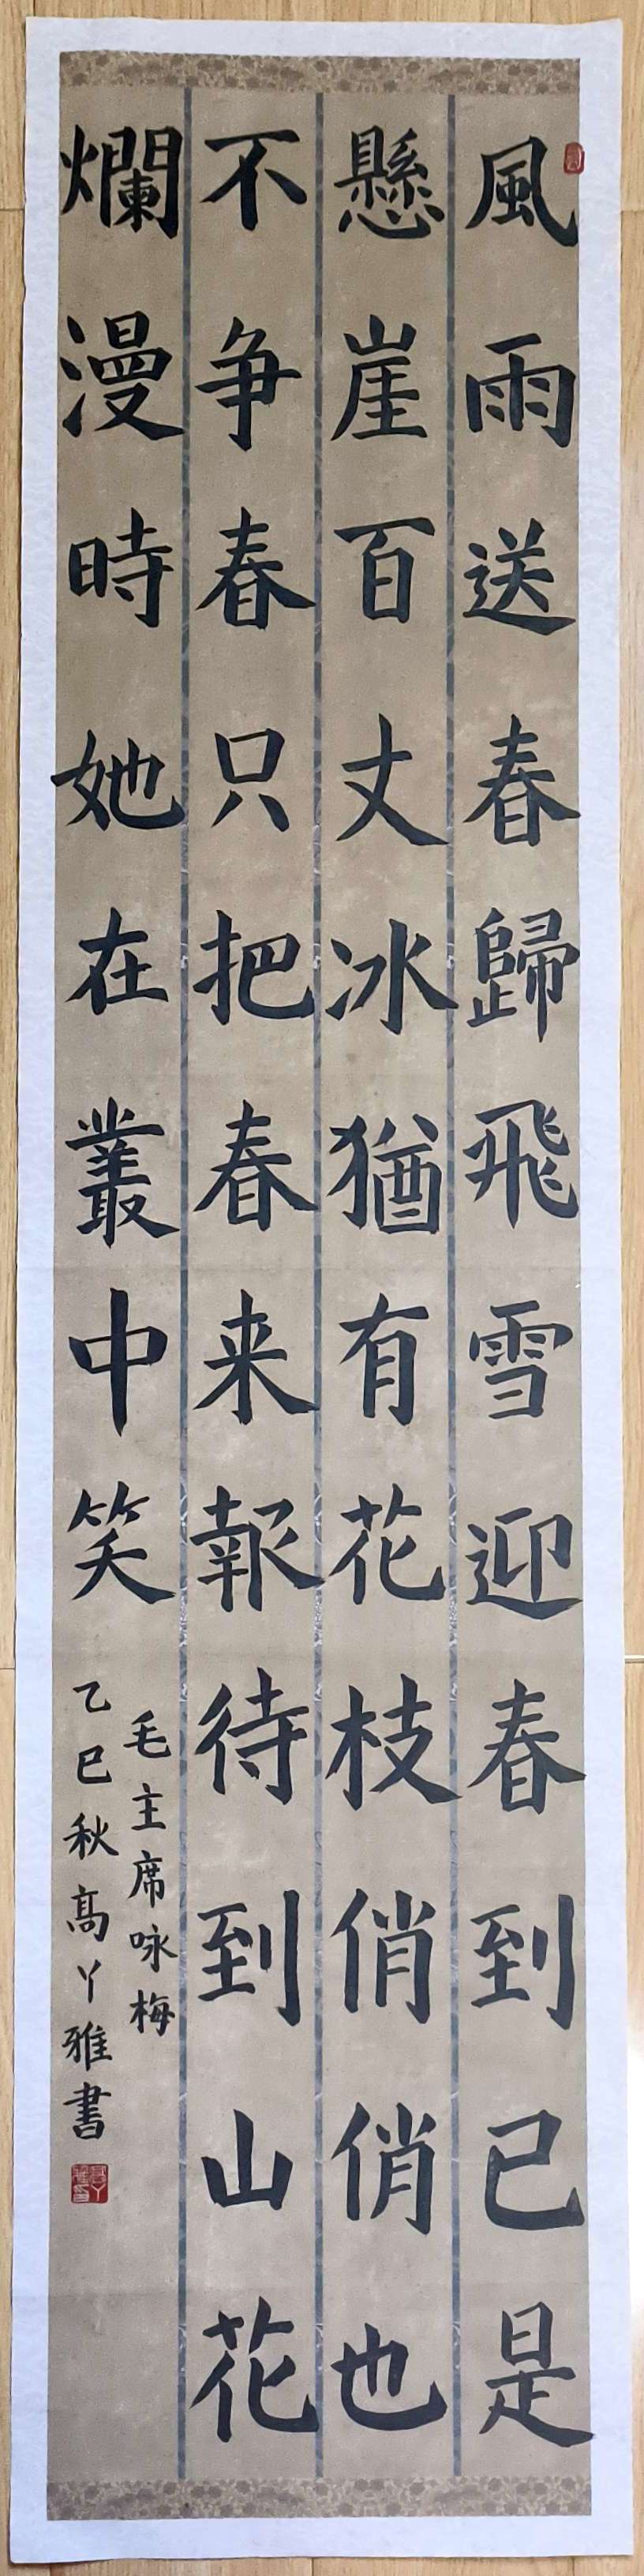 風雨送春歸飛雪迎春到已是
懸崖百丈冰猶有花枝俏俏也
不争春只把春来報待到山花
爛漫時她在叢中笑
毛主席咏梅
乙巳秋高丫雅書